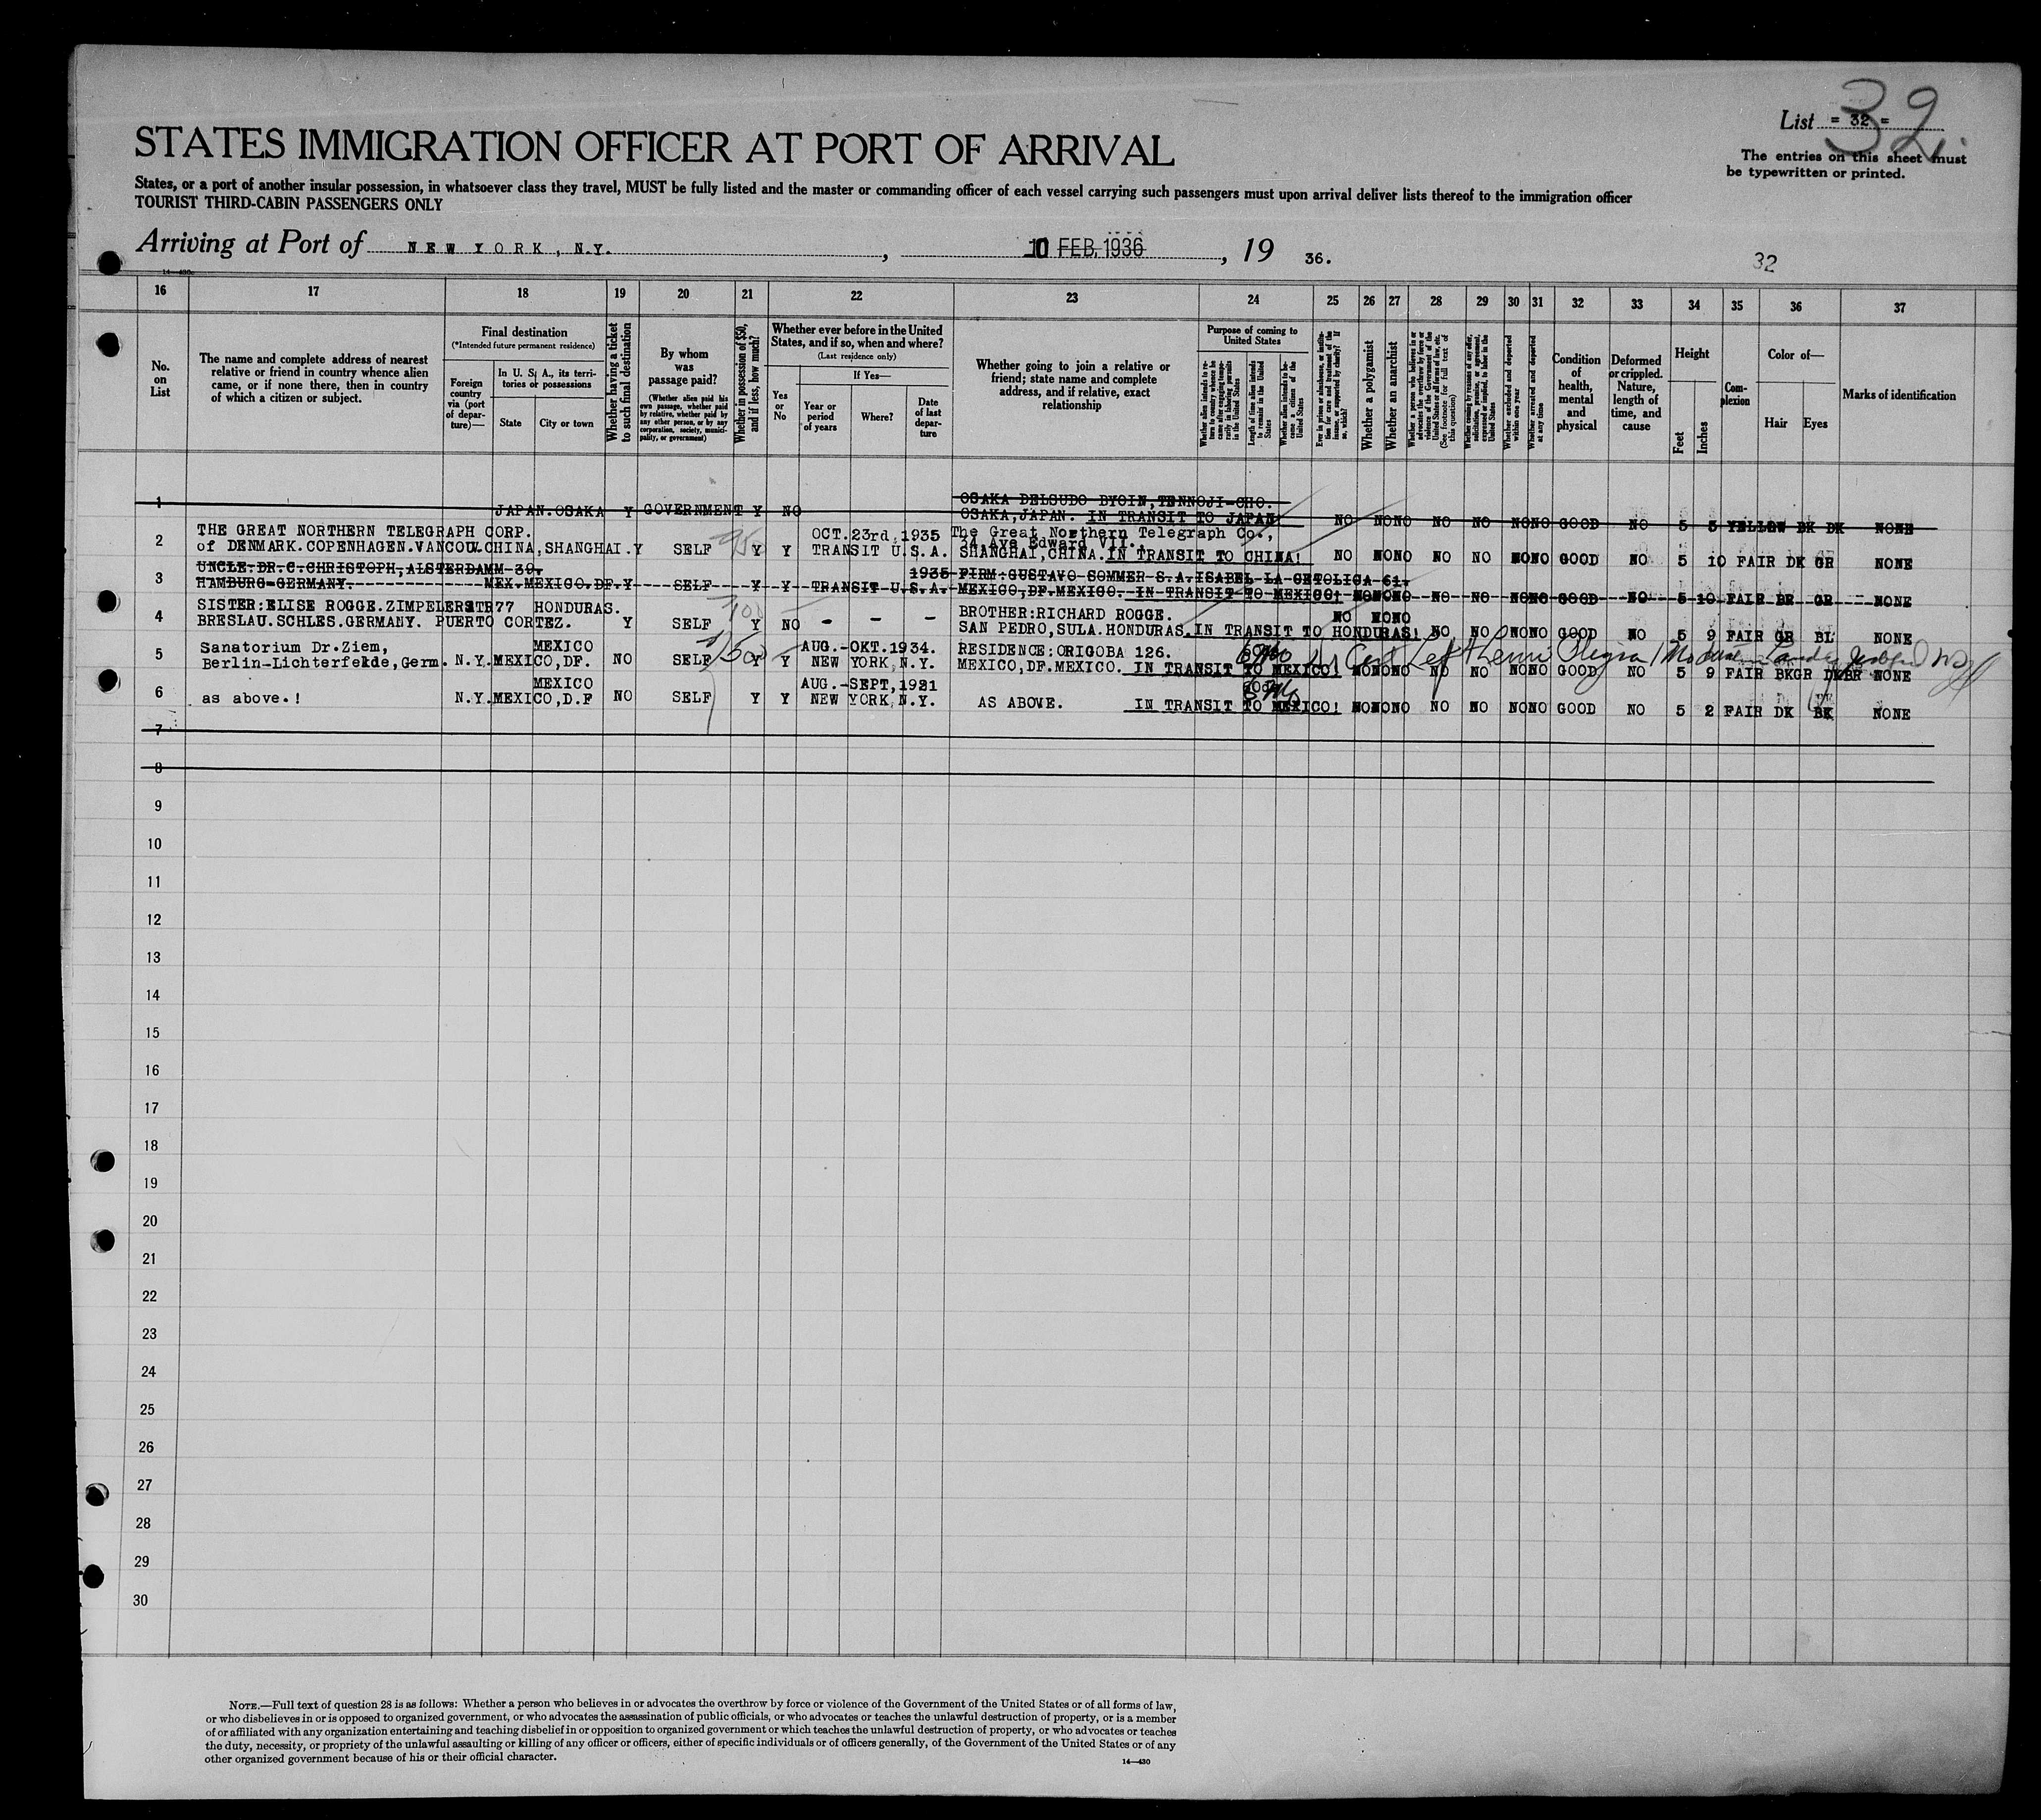 List = 32 =
32
STATES IMMIGRATION OFFICER AT PORT OF ARRIVAL
The entries on this sheet must
be typewritten or printed.
States, or a port of another insular possession, in whatsoever class they travel, MUST be fully listed and the master or commanding officer of each vessel carrying such passengers must upon arrival deliver lists thereof to the immigration officer
TOURIST THIRD-CABIN PASSENGERS ONLY
Arriving at Port of NEW YORK, N.Y. , 10 FEB. 1936 , 19 36.
32
16 17 18 19 20 21 22 23 24 25 26 27 28 29 30 31 32 33 34 35 36 37
No.
on
List
The name and complete address of nearest
relative or friend in country whence alien
came, or if none there, then in country
of which a citizen or subject.
Final destination
(*Intended future permanent residence)
Foreign
country
via (port
of depar-
ture)—
In U. S. A., its terri-
tories or possessions
State
City or town
Whether having a ticket
to such final destination
By whom
was
passage paid?
(Whether alien paid his
own passage, whether paid
by relative, whether paid by
any other person, or by any
corporation, society, munici-
pality, or government)
Whether in possession of $50,
and if less, how much?
Whether ever before in the United
States, and if so, when and where?
(Last residence only)
Yes
or
No
If Yes—
Year or
period
of years
Where?
Date
of last
depar-
ture
Whether going to join a relative or
friend; state name and complete
address, and if relative, exact
relationship
Purpose of coming to
United States
Whether alien intends to re-
turn to country whence he
came after engaging tempo-
rarily in laboring pursuits
in the United States
Length of time alien intends
to remain in the United
States
Whether alien intends to be-
come a citizen of the
United States
Ever in prison or almshouse, or institu-
tion for care and treatment of the
insane, or supported by charity? If
so, which?
Whether a polygamist
Whether an anarchist
Whether a person who believes in or
advocates the overthrow by force or
violence of the Government of the
United States or all forms of law, etc.
(See footnote for full text of
this question)
Whether coming by reason of any offer,
solicitation, promise, or agreement,
expressed or implied, to labor in the
United States
Whether excluded and deported
within one year
Whether arrested and deported
at any time
Condition
of
health,
mental
and
physical
Deformed
or crippled.
Nature,
length of
time, and
cause
Height
Feet
Inches
Com-
plexion
Color of—
Hair
Eyes
Marks of identification
OSAKA DELSUDO BYOIN, TENNOJI-CHO.
1 JAPAN.OSAKA Y GOVERNMENT Y NO OSAKA, JAPAN. IN TRANSIT TO JAPAN NO NO NO NO NO NO NO GOOD NO 5 5 YELLOW DK DK NONE
THE GREAT NORTHERN TELEGRAPH CORP. OCT. 23rd, 1935 The Great Northern Telegraph Co.,
34 Ave Edward VII.
2 of DENMARK.COPENHAGEN.VANCOU.CHINA,SHANGHAI.Y SELF Y Y TRANSIT U.S.A. SHANGHAI, CHINA. IN TRANSIT TO CHINA! NO NO NO NO NO NO NO GOOD NO 5 10 FAIR DK GR NONE
UNCLE:DR.C.CHRISTOPH, ALSTERDAMM 39, 1935 FIRM:GUSTAVO SOMMER S.A.ISABEL LA CETOLICA 61.
3 HAMBURG-GERMANY. MEX.MEXICO.DF.Y SELF Y Y TRANSIT U.S.A. MEXICO,DF.MEXICO. IN TRANSIT TO MEXICO! NO NO NO NO NO NO NO GOOD NO 5 10 FAIR BR GR NONE
SISTER:ELISE ROGGE.ZIMPELERSTR77 HONDURAS. BROTHER:RICHARD ROGGE. NO NO NO
4 BRESLAU.SCHLES.GERMANY. PUERTO CORTEZ. Y SELF Y NO - - - SAN PEDRO, SULA.HONDURAS. IN TRANSIT TO HONDURAS! NO NO NO NO GOOD NO 5 9 FAIR GR BL NONE
Sanatorium Dr.Ziem, MEXICO AUG.-OKT.1934. RESIDENCE:ORIGOBA 126.
5 Berlin-Lichterfelde,Germ. N.Y. MEXICO,DF. NO SELF Y Y NEW YORK, N.Y. MEXICO, DF.MEXICO. IN TRANSIT TO MEXICO! NO NO NO NO NO NO NO GOOD NO 5 9 FAIR BKGR DKBR NONE
MEXICO AUG.-SEPT,1921
6 as above.! N.Y. MEXICO,D.F NO SELF Y Y NEW YORK, N.Y. AS ABOVE. IN TRANSIT TO MEXICO! NO NO NO NO NO NO NO GOOD NO 5 2 FAIR DK BK NONE
7
8
9
10
11
12
13
14
15
16
17
18
19
20
21
22
23
24
25
26
27
28
29
30
NOTE.—Full text of question 28 is as follows: Whether a person who believes in or advocates the overthrow by force or violence of the Government of the United States or of all forms of law,
or who disbelieves in or is opposed to organized government, or who advocates the assassination of public officials, or who advocates or teaches the unlawful destruction of property, or is a member
of or affiliated with any organization entertaining and teaching disbelief in or opposition to organized government or which teaches the unlawful destruction of property, or who advocates or teaches
the duty, necessity, or propriety of the unlawful assaulting or killing of any officer or officers, either of specific individuals or of officers generally, of the Government of the United States or of any
other organized government because of his or their official character.
14—430